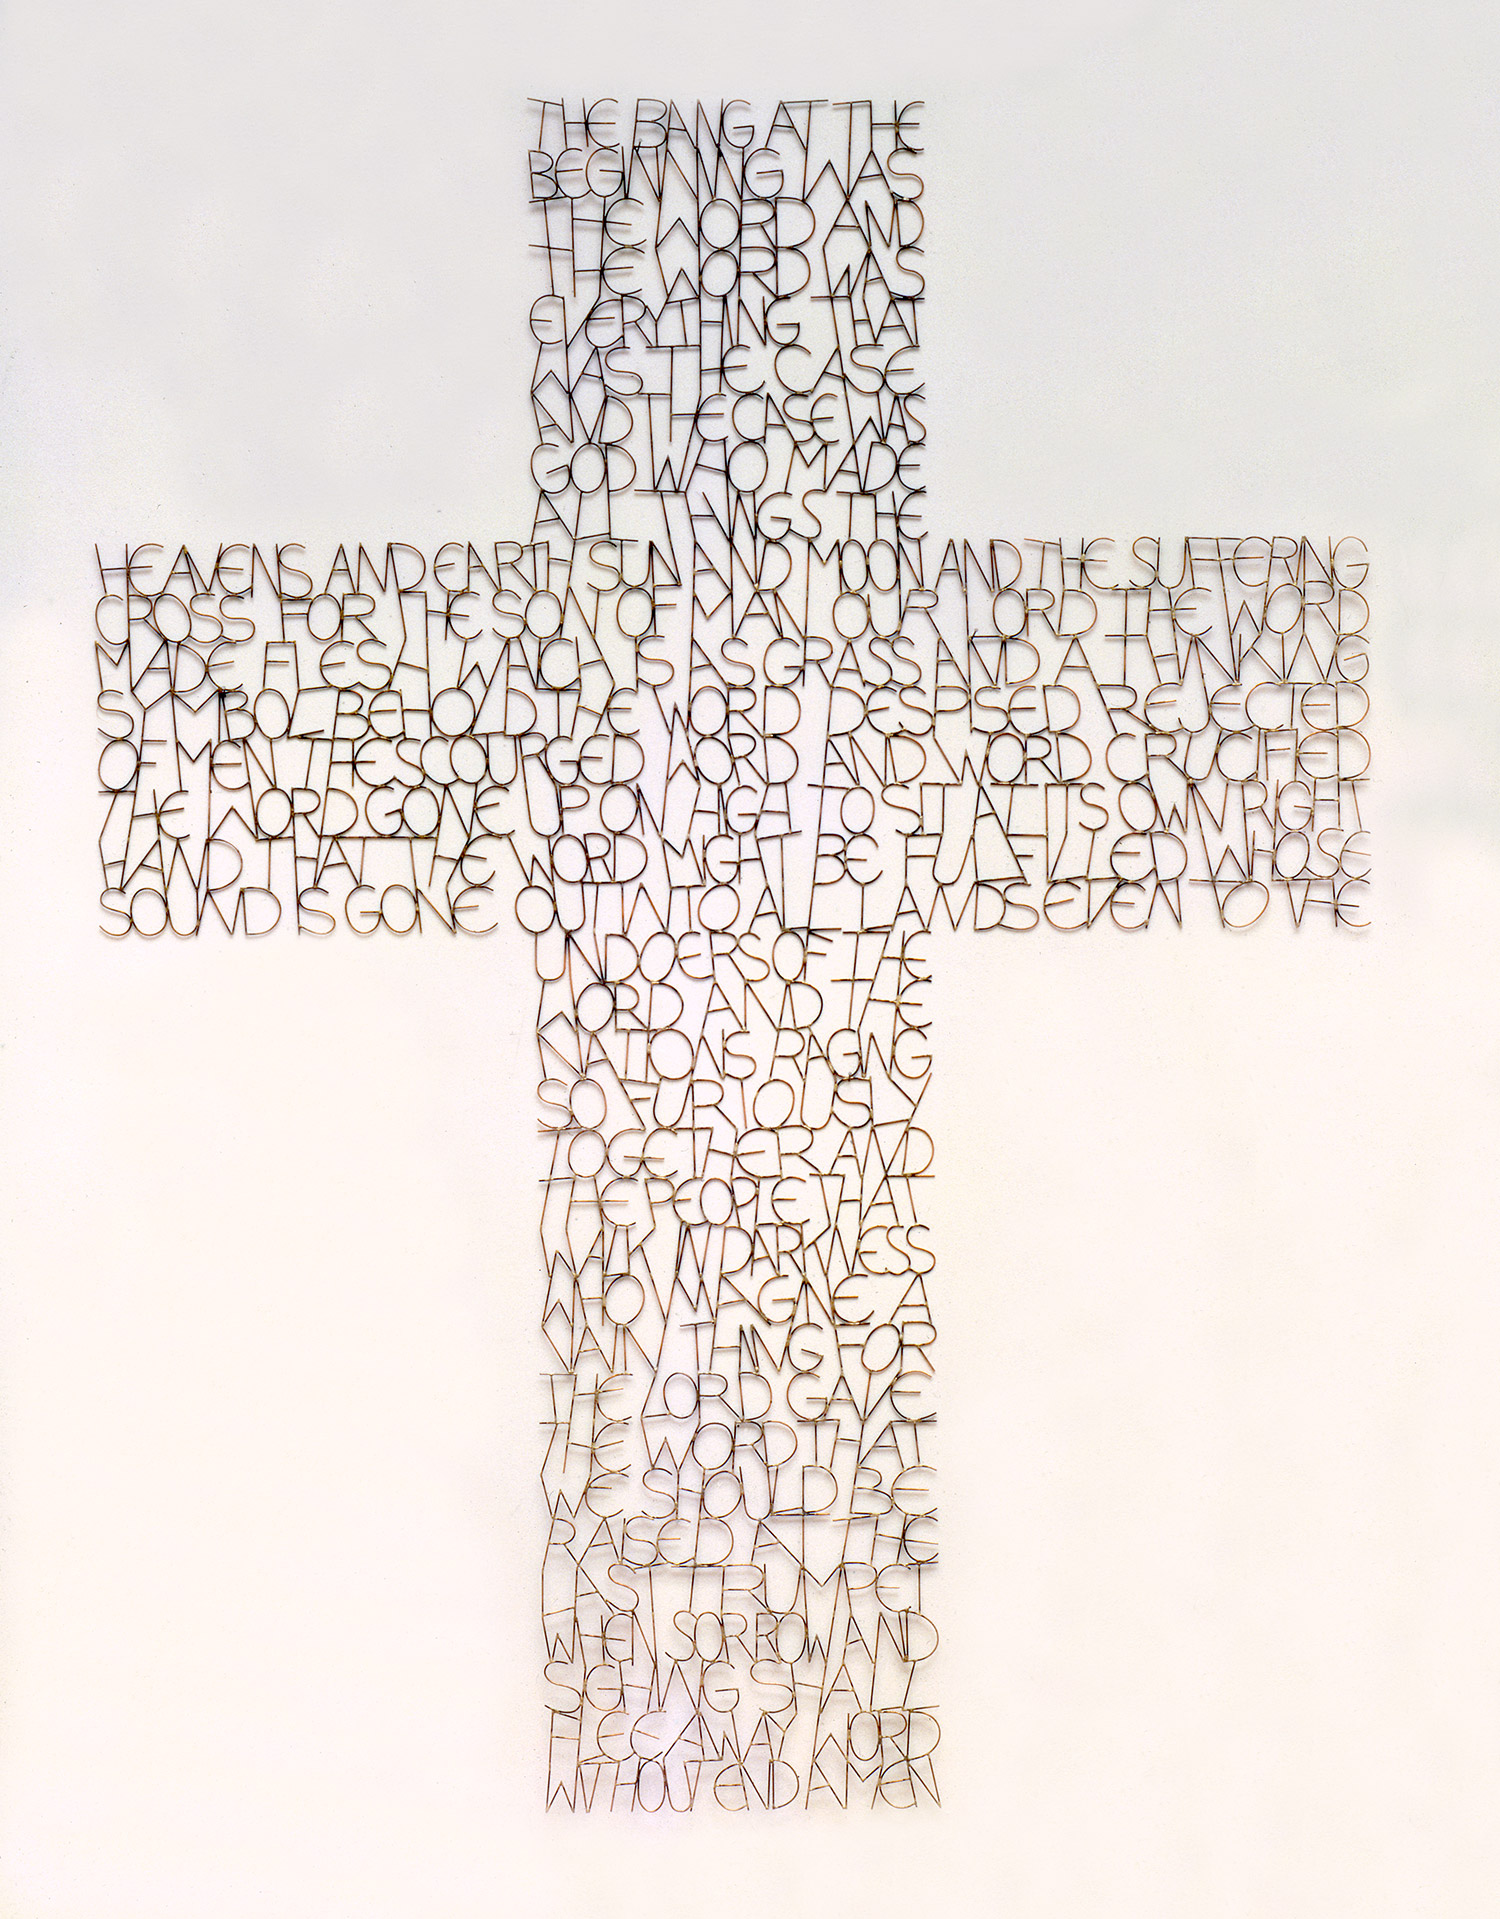 THE BANG AT THE
BEGINNING WAS
THE WORD AND
THE WORD WAS
EVERYTHING THAT
WAS THE CASE
AND THE CASE WAS
GOD WHO MADE
ALL THINGS THE
HEAVENS AND EARTH SUN AND MOON AND THE SUFFERING
CROSS FOR THE SON OF MAN OUR LORD THE WORD
MADE FLESH WHICH IS AS GRASS AND A THINKING
SYMBOL BEHOLD THE WORD DESPISED REJECTED
OF MEN THE SCOURGED WORD AND WORD CRUCIFIED
THE WORD GONE UP ON HIGH TO SIT AT ITS OWN RIGHT
HAND THAT THE WORD MIGHT BE FULFILLED WHOSE
SOUND IS GONE OUT INTO ALL LANDS EVEN TO THE
UNDOERS OF THE
WORD AND THE
NATIONS RAGING
SO FURIOUSLY
TOGETHER AND
THE PEOPLE THAT
WALK IN DARKNESS
WHO IMAGINE A
VAIN THING FOR
THE LORD GAVE
THE WORD THAT
WE SHOULD BE
RAISED AT THE
LAST TRUMPET
WHEN SORROW AND
SIGHING SHALL
FLEE AWAY WORD
WITHOUT END AMEN